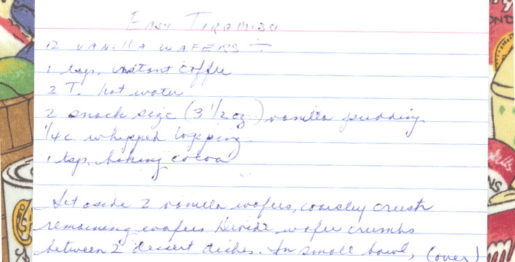 Easy Tiramisu
12 vanilla wafers ÷
1 tsp. instant coffee
2 T. hot water
2 snack size (3 1/2 oz) vanilla pudding
1/4 c whipped topping
1 tsp. baking cocoa
Set aside 2 vanilla wafers, coarsley crush
remaining wafers Divide wafer crumbs
between 2 dessert dishes. In small bowl, (over)